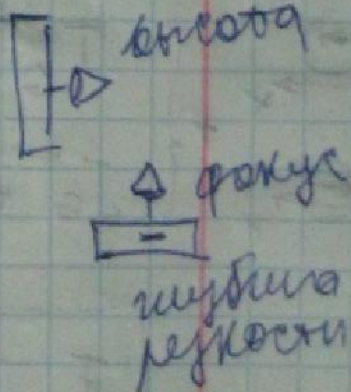 высота
фокус
глубина
резкости